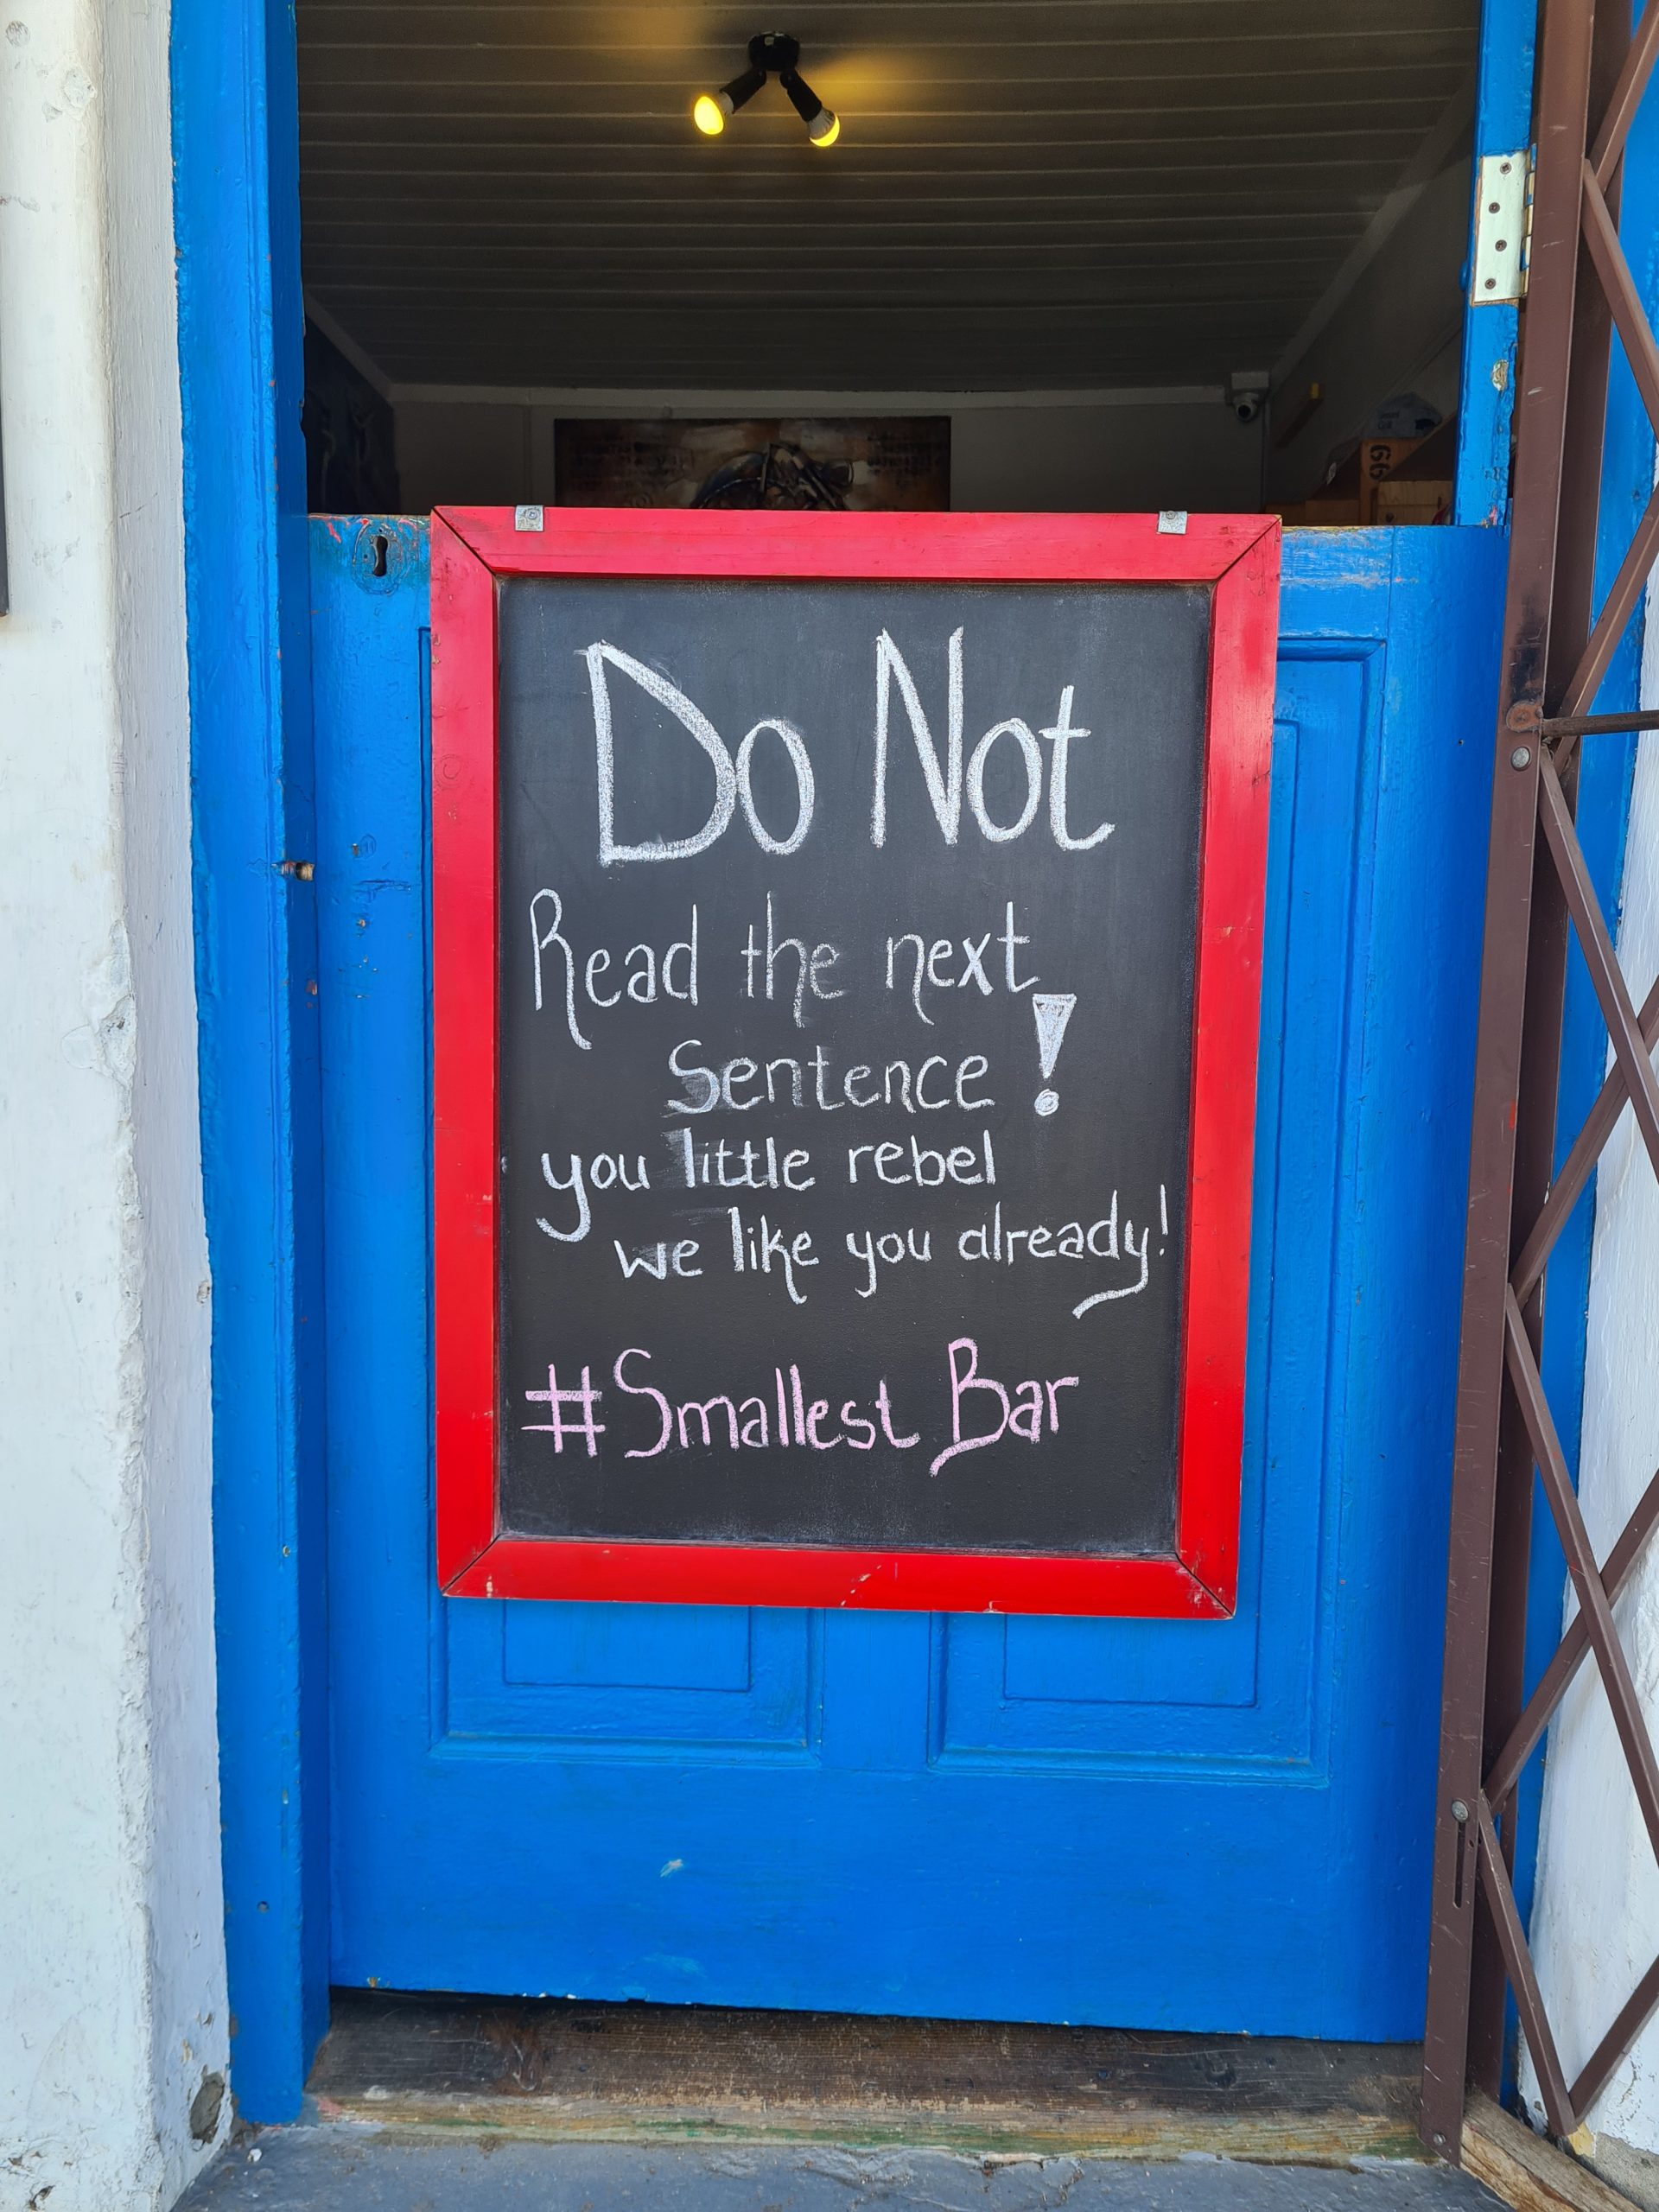 Do Not
Read the next
Sentence !
you little rebel
we like you already!
#Smallest Bar
66